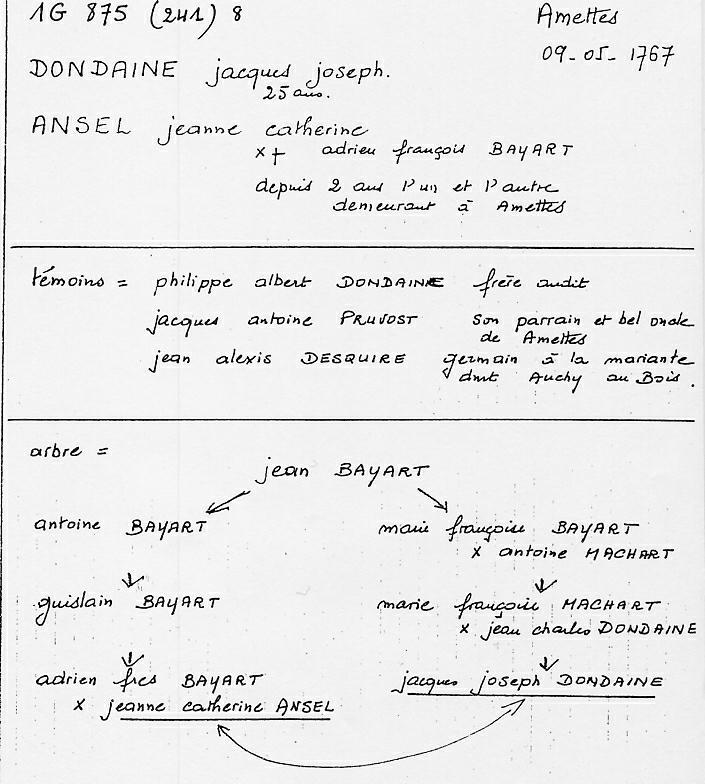 1G 875 (241) 8
Amettes
09-05-1767
DONDAINE jacques joseph.
25 ans.
ANSEL jeanne catherine
x+ adrien françois BAYART
depuis 2 ans l'un et l'autre
demeurant à Amettes
témoins = philippe albert DONDAINE frère audit
jacques antoine PRUVOST son parrain et bel oncle
de Amettes
jean alexis DESQUIRE germain à la mariante
dmt Auchy au Bois.
arbre =
jean BAYART
antoine BAYART
marie françoise BAYART
x antoine MACHART
guislain BAYART
marie françoise MACHART
x jean charles DONDAINE
adrien fres BAYART
x jeanne catherine ANSEL
jacques joseph DONDAINE